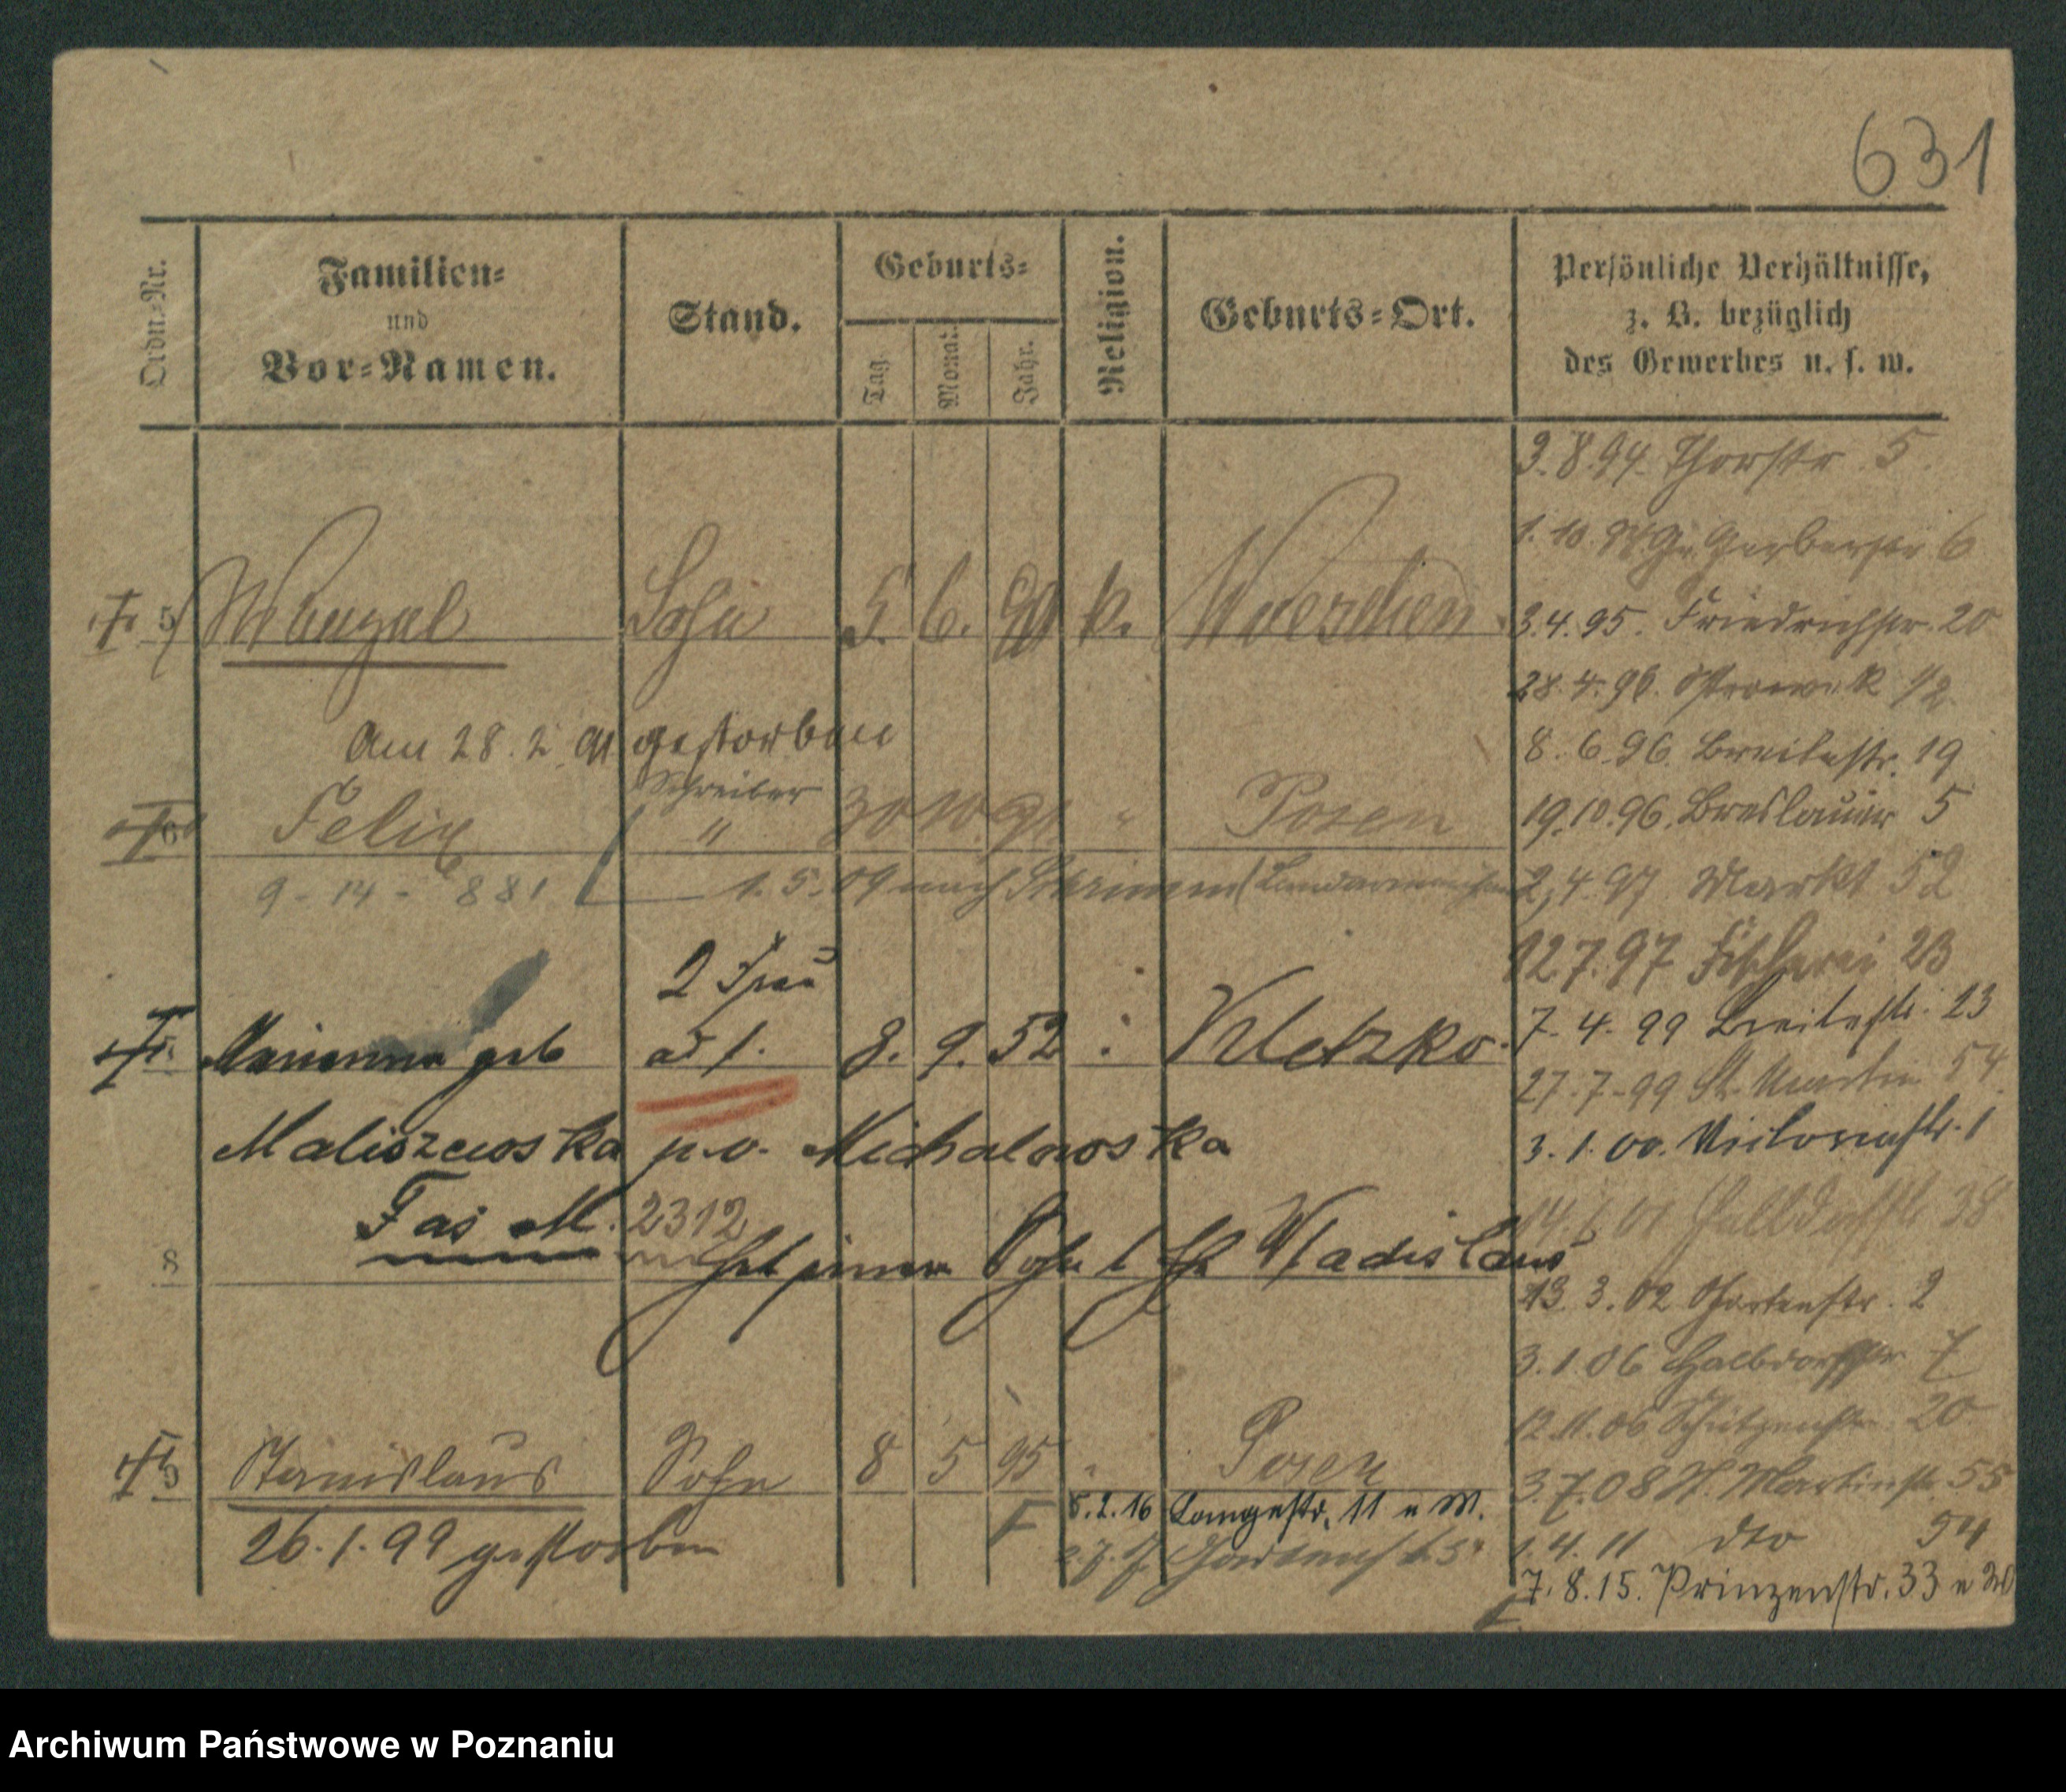 631
Ordn.-Nr.
Familien-
und
Vor-Namen.
Stand.
Geburts-
Tag.
Monat.
Jahr.
Religion.
Geburts-Ort.
Persönliche Verhältnisse,
z. B. bezüglich
des Gewerbes u. s. w.
5 Wenzel Sohn 5. 6. 90 k. Wreschen
Am 28. 2. 91 gestorben
Schreiber
6 Felix " 30 10. 91 " Posen
9 - 14 - 881 1. 5. 09 nach Schrimm
2 Frau
Marianna geb ad 1. 8. 9. 52 Kletzko.
Maliszewska p.v. Michalowska
Fas M. 2312
8 Sohn Wladislaus
Stanislaus Sohn 8 5 95 " Posen
26. 1. 99 gestorben
3. 8. 94. Thorstr. 5.
1. 10. 94 Gr. Gerberstr 6
3. 4. 95. Friedrichstr. 20
28. 4. 96. Ostrowek 12.
8. 6. 96. Breitestr. 19
19. 10. 96. Breslauer 5
2. 4. 97 Markt 52
12 7. 97 Fischerei 23
7. 4. 99 Breitestr. 23
27. 7. 99 St. Martin 54
3. 1. 00. Victoriastr. 1
14. 1. 01 Halbdorfstr 38
13. 3. 02 Gartenstr. 2
3. 1. 06 Halbdorfstr 7
12. 11. 06 Schützenstr. 20
3. 7. 08 St. Martinstr. 55
1. 4. 11 dto 54
7. 8. 15. Prinzenstr. 33 e W
8. 2. 16 Langestr. 11 e W.
Gartenstr. 5
Archiwum Państwowe w Poznaniu